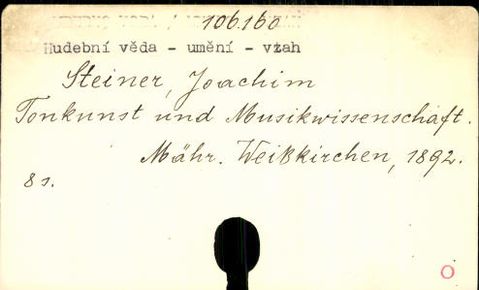 106.160
Hudební věda - umění - vztah
Steiner, Joachim
Tonkunst und Musikwissenschaft.
Mähr. Weißkirchen, 1892.
8 s.